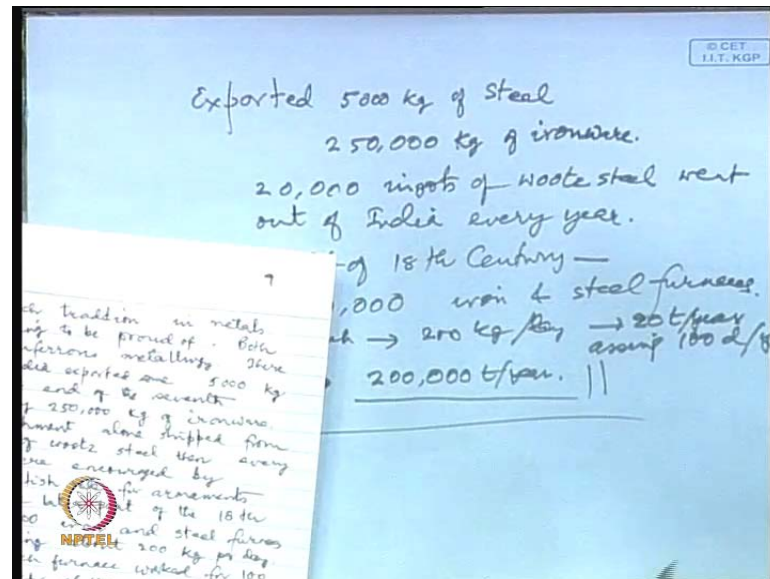 © CET
I.I.T. KGP
Exported 5000 kg of Steel
250,000 kg of ironware.
20,000 ingots of woote steel went
out of India every year.
of 18th Century —
,000 iron & steel furnaces.
→ 200 kg/day → 20 t/year
assuing 100 d/y
200,000 t/year. ||
9
tradition in metals
to be proud of. Both
nferrous metallurgy. There
dia exported some 5000 kg
end of the seventh
250,000 kg of ironware.
hment alone shipped from
of wootz steel then every
re encouraged by
tish for armaments
part of the 18th
00 and steel furnes
ing 200 kg per day.
ch furnace worked for 100
NPTEL